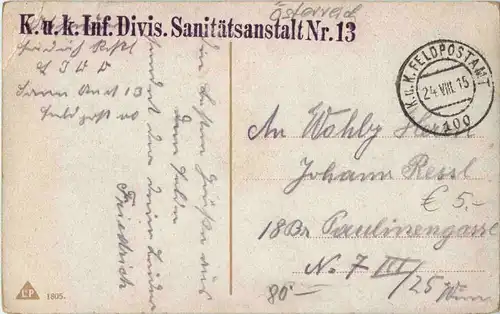 Österreich
K. u. k. Inf. Divis. Sanitätsanstalt Nr. 13
Friedrich Ressl
13
Feldpost
K.u.K. FELDPOSTAMT
24 VIII. 15
400
Die besten Grüße aus
dem Felde
sendet der
Friedrich
An Wohlg. Herrn
Johann Ressl
€ 5.-
18 Bz. Paulinengasse
N. 7 III/25 Wien
80-
CP
1805.